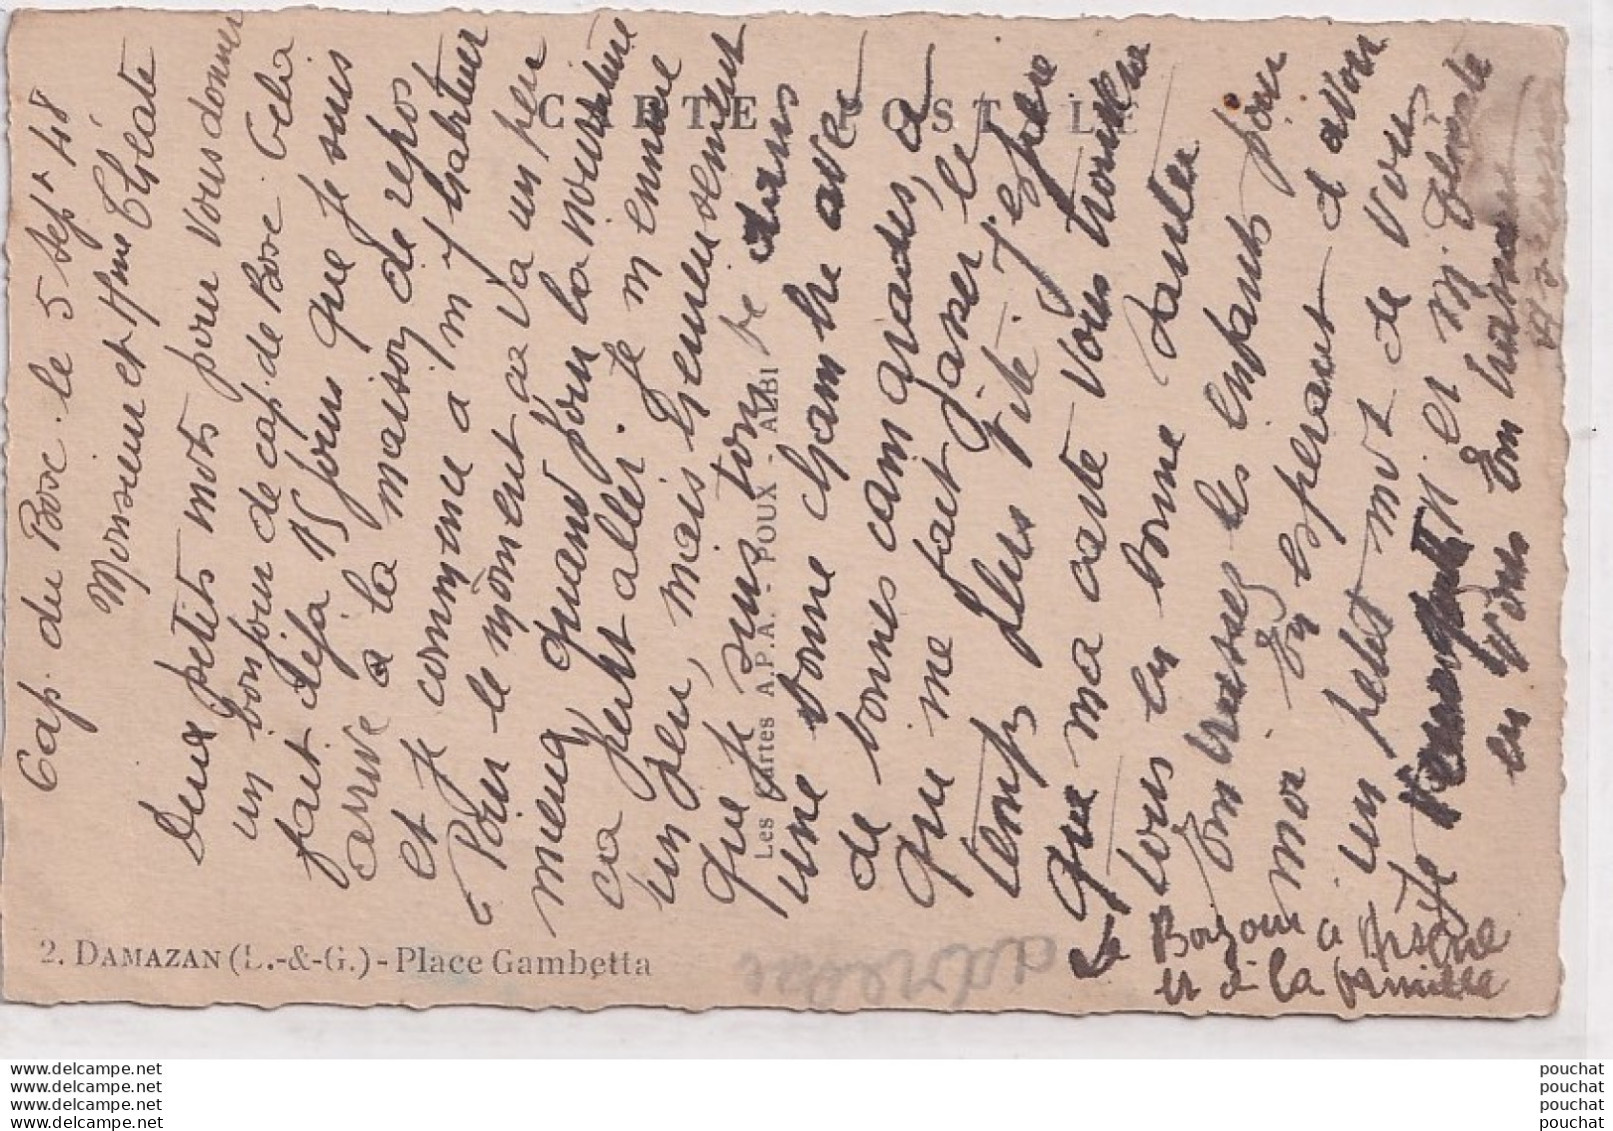 Cap. du Bosc. le 5 Sept 48
Monsieur et Mme
Deux petits mots pour vous donner
un bonjour de cap. de Bosc. Cela
fait déjà 15 jours que je suis
arrivé a la maison de repos
et je commence a m'y habituer
Pour le moment ca va un peu
mieux quand pour la nourriture
ca peut aller. Je m'ennuie
un peu, mais heureusement
que je suis tombé dans
une bonne chambre avec
de bonnes camarades, ca
que me fait passer le
temps plus vite. J'espère
que ma carte vous trouvera
tous en bonne santée
Embrassez les enfants pour
moi En esperant d'avoir
un petit mot de vous
et M.
en vous Embrassant
Le Bonjour a
et à la famille
CARTE POSTALE
Les Cartes A.P.A. - POUX - ALBI
2. DAMAZAN (L.-&-G.) - Place Gambetta
www.delcampe.net
www.delcampe.net
www.delcampe.net
www.delcampe.net
pouchat
pouchat
pouchat
pouchat